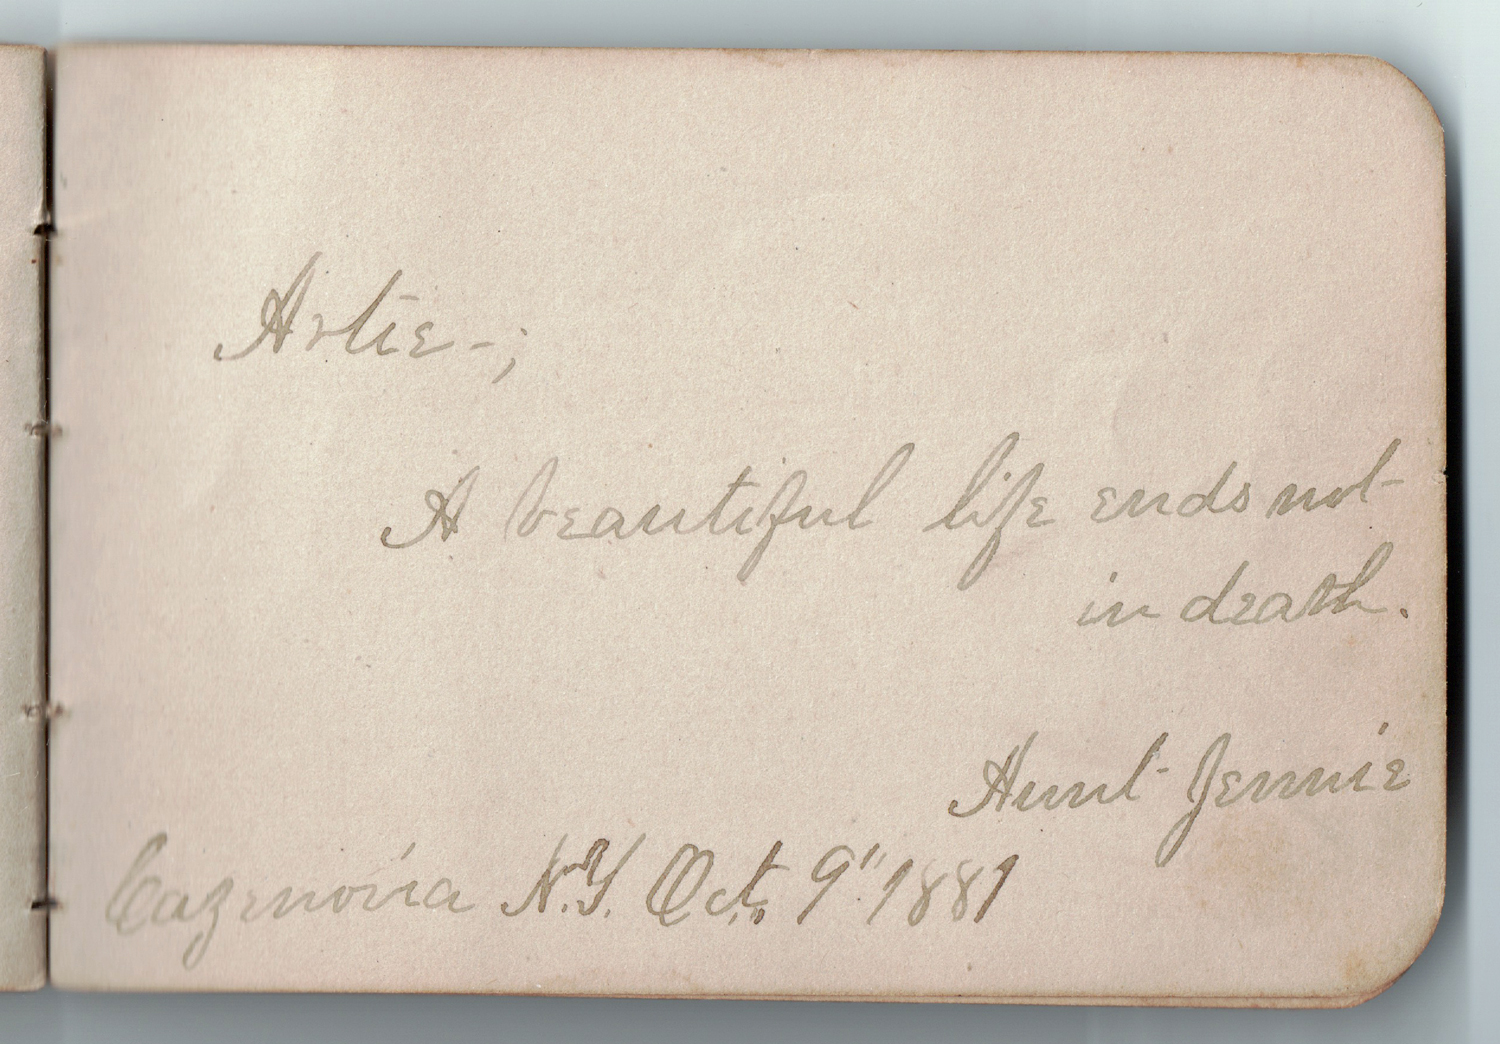 Artie-;
A beautiful life ends not
in death.
Aunt Jennie
Cazenovia N.Y. Oct. 9" 1881